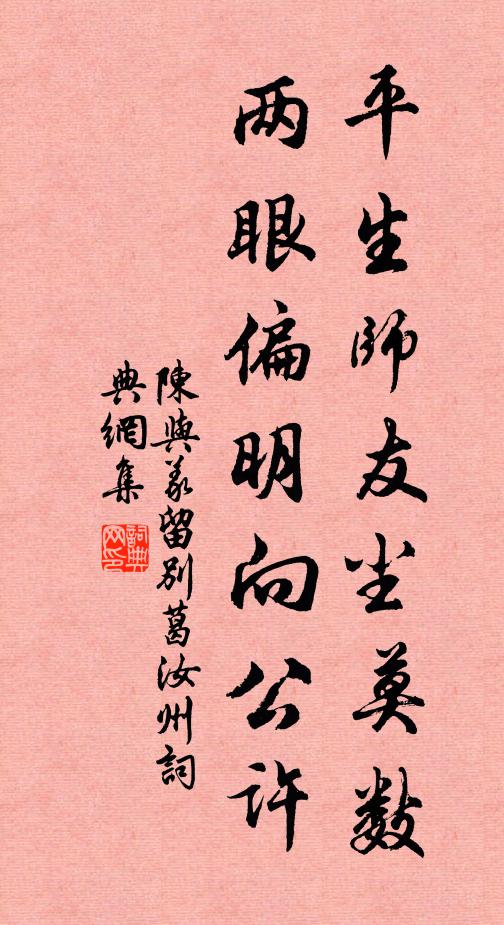 平生師友尘莫數
两眼偏明向公許
陳與義留别葛汝州詞
典網集
詞典
网印